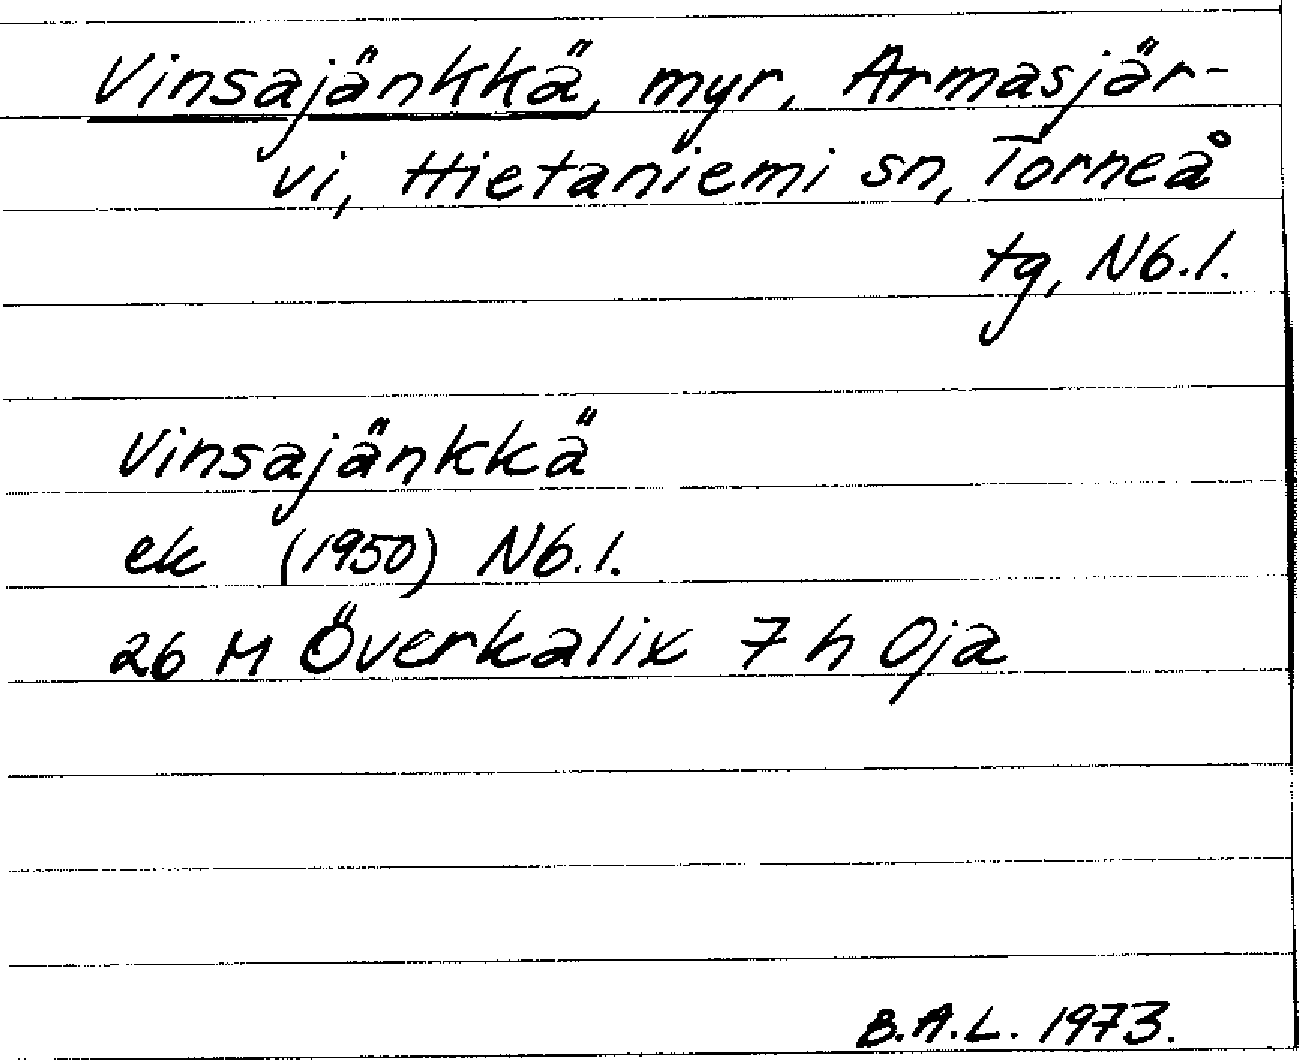 Vinsajänkkä, myr, Armasjär-
vi, Hietaniemi sn, Torneå
tg, Nb.l.
Vinsajänkkä
ek (1950) Nb.l.
26 M Överkalix 7 h Oja
B.A.L. 1973.